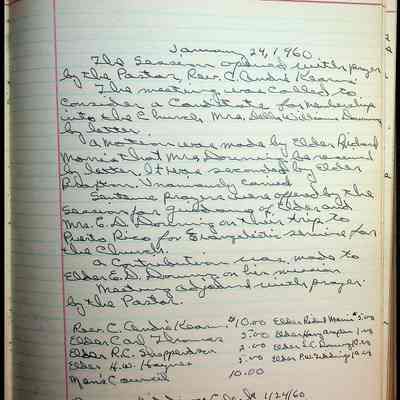 January 24, 1960
The Session opened with prayer
by the Pastor, Rev. C. André Kearns.
The meeting was called to
consider a Candidate for membership
into the Church Mrs. Della Williams Downing
by letter.
A motion was made by Elder Richard
Morris that Mrs. Downing be received
by letter. It was seconded by Elder
Unamously carried
Sentence prayers were offered by the
Session for guidance of Elder and
Mrs. E. D. Downing on their trip to
Puerto Rico for Evangelistic service for
the Church.
A Contribution was made to
Elder E. D. Downing on his mission
Meeting adjourned with prayer
by the Pastor.
Rev. C. André Kearns $10.00 Elder Richard Morris $5.00
Elder Carl Thomas 5.00 Elder
Elder R. C. Shepperdson 2.00 Elder Downing
Elder H. W. Haynes 5.00 Elder
Men's Council 10.00
1/24/60